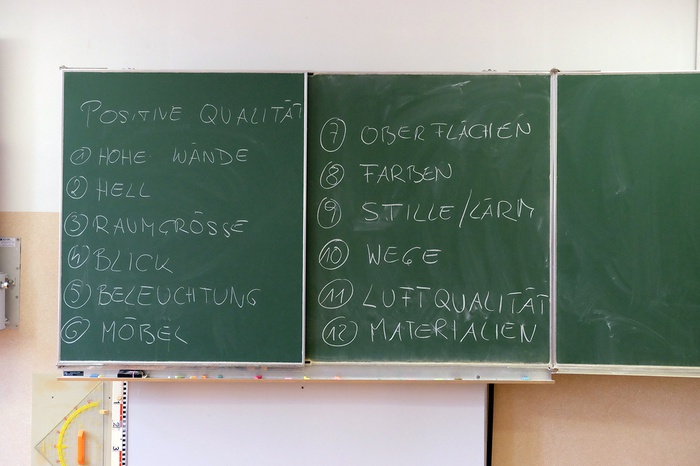 POSITIVE QUALITÄT
1 HOHE WÄNDE
2 HELL
3 RAUMGRÖSSE
4 BLICK
5 BELEUCHTUNG
6 MÖBEL
7 OBERFLÄCHEN
8 FARBEN
9 STILLE/LÄRM
10 WEGE
11 LUFTQUALITÄT
12 MATERIALIEN